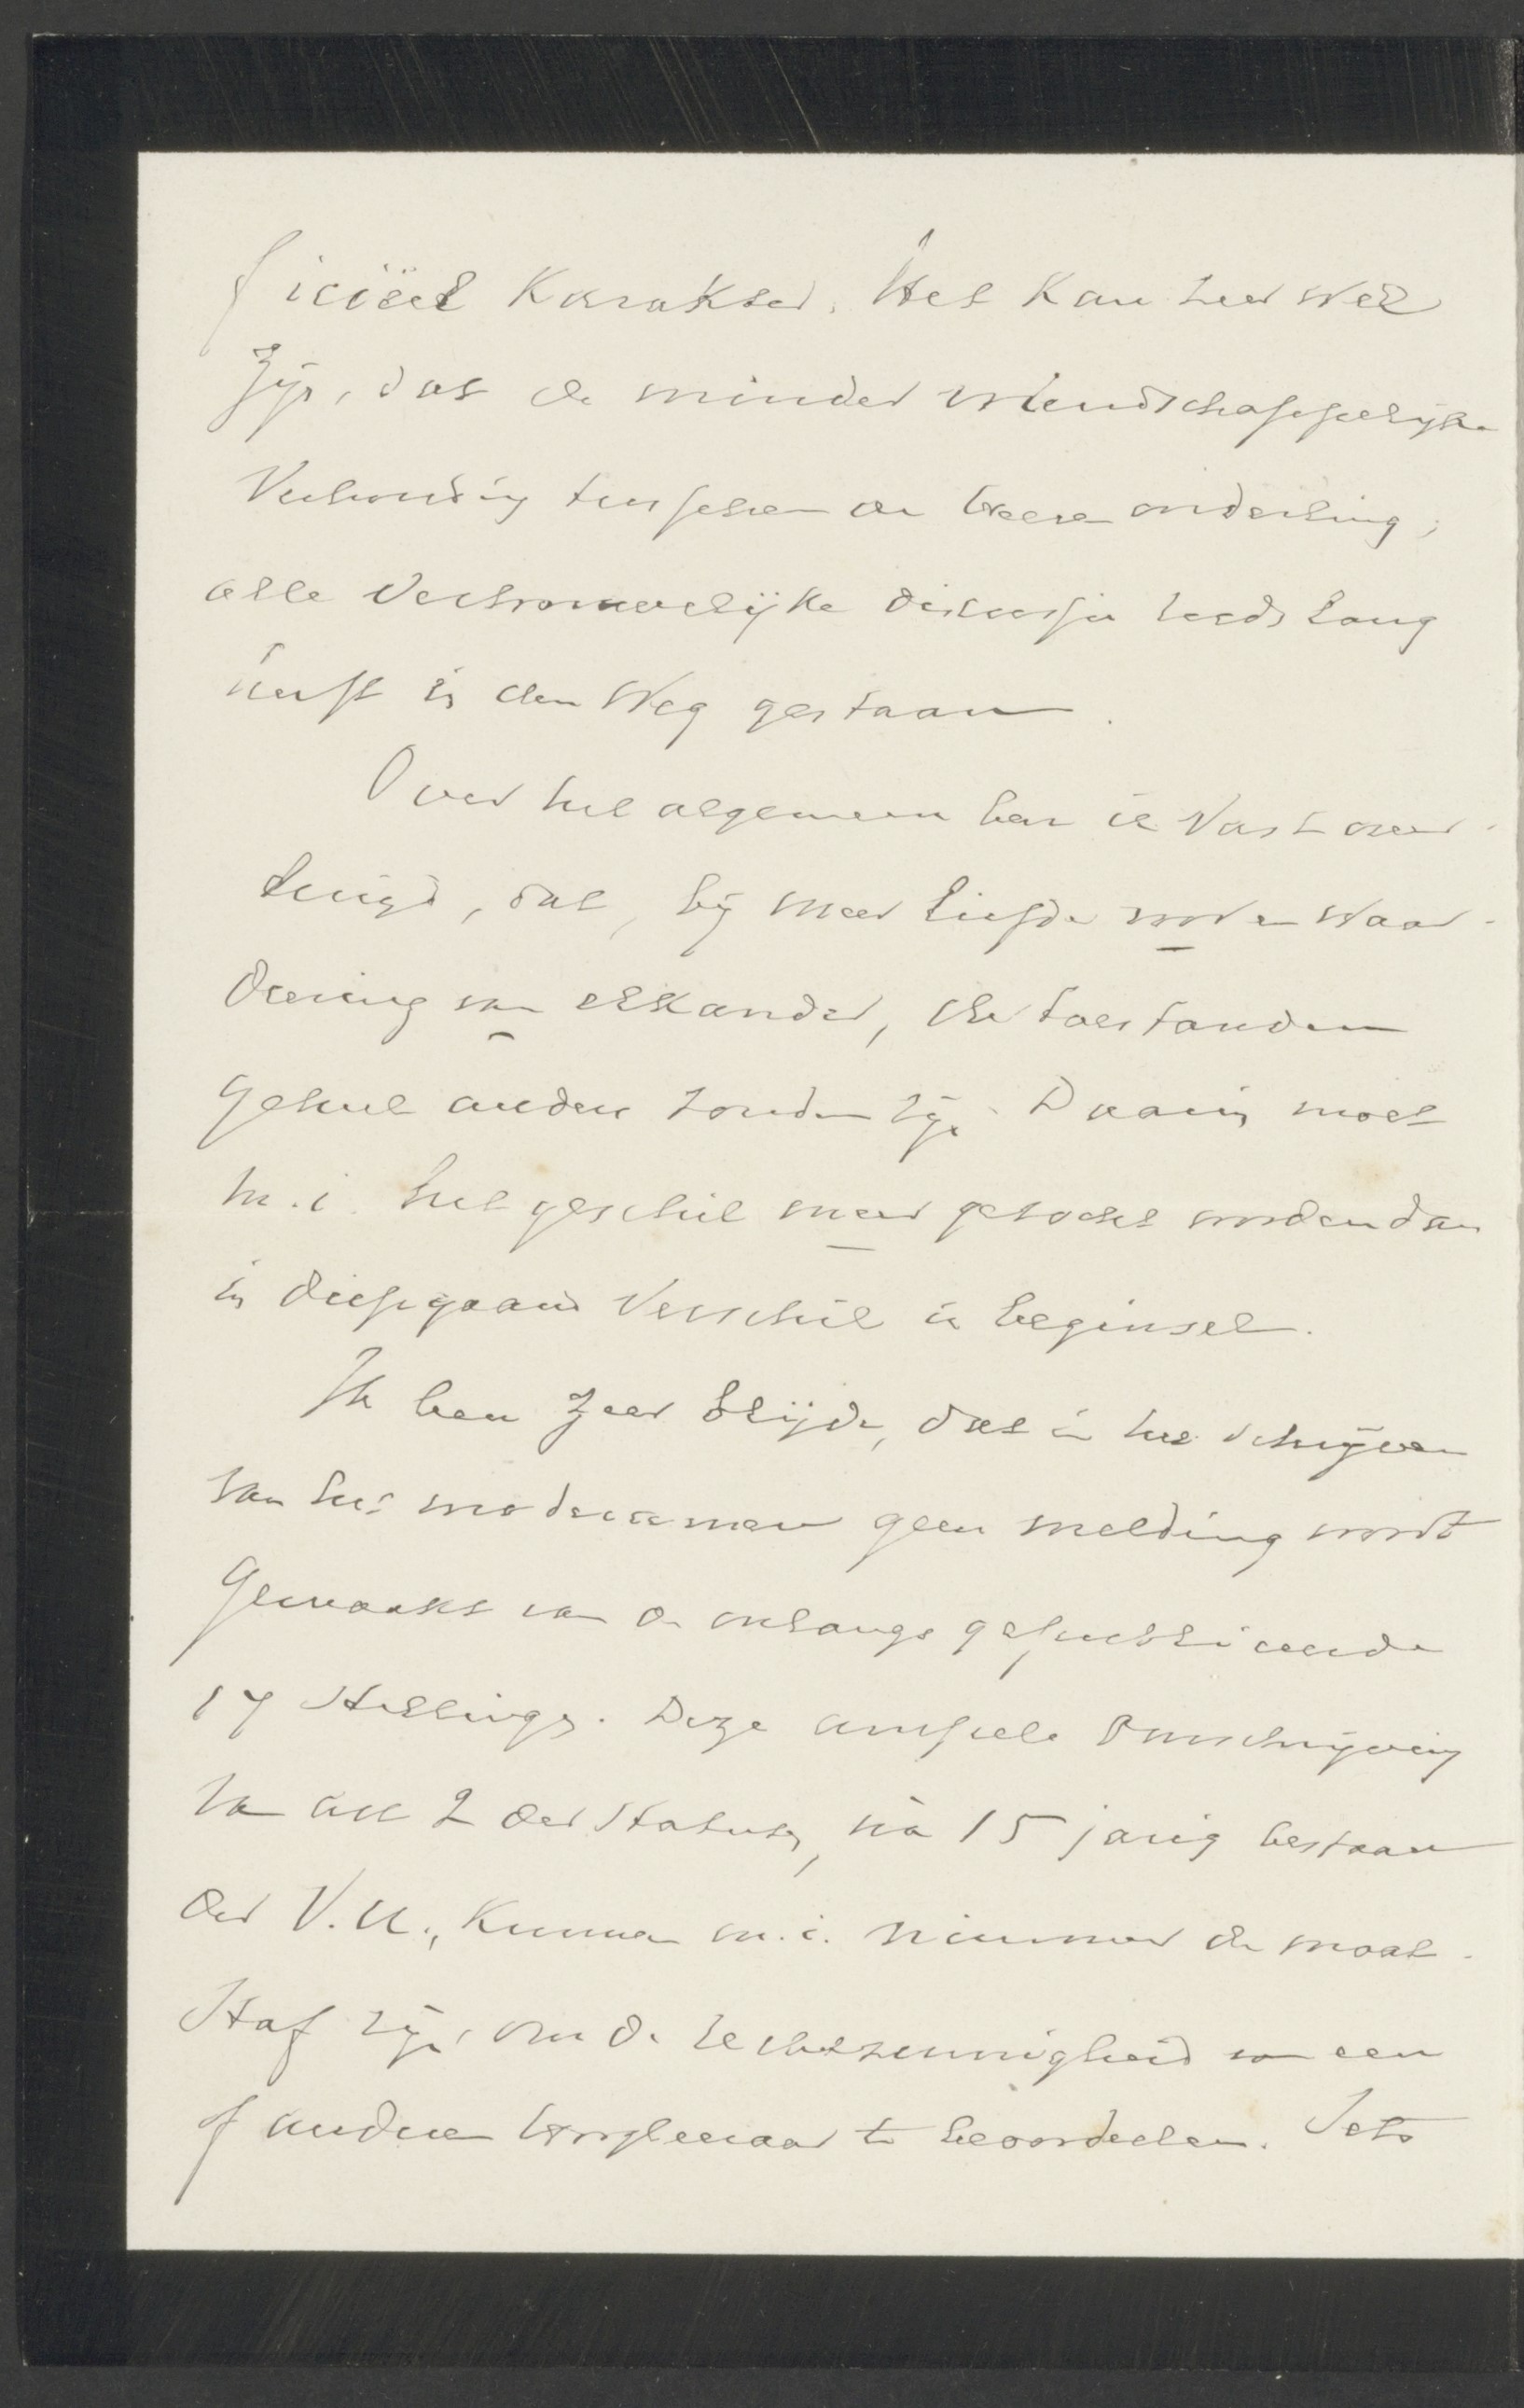 ficiëel karakter. Het kan zeer wel
zijn, dat de minder vriendschappelijke
verhouding tusschen de heeren onderling,
alle vertrouwelijke discussie reeds lang
heeft in den weg gestaan.
Over het algemeen ben ik vast over-
tuigd, dat, bij meer liefde voor en waar-
deering van elkander, de toestanden
geheel anders zouden zijn. Daarin moet
m.i. het geschil meer gezocht worden dan
in diepgaand verschil in beginsel.
Ik ben zeer blijde, dat in het schrijven
van het moderamen geen melding wordt
gemaakt van de onlangs gepubliceerde
17 stellingen. Deze ampele omschrijving
van art 2 der statuten, na 15 jarig bestaan
der V.U., kunnen m.i. nimmer de maat-
staf zijn, om de rechtzinnigheid van een
of anderen hoogleeraar te beoordeelen. Iets